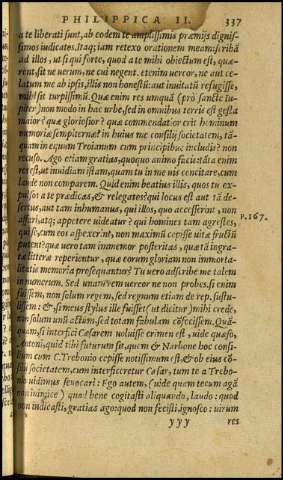 PHILIPPICA II. 337
a te liberati sunt, ab eodem te amplissimis præmijs dignis-
simos iudicates. Itaq; iam retexo orationem meam: scribā
ad illos, ut si qui forte, quod a te mihi obiectum est, quæ-
rent, sit ne uerum, ne cui negent. etenim uereor, ne aut ce-
latum me ab ipsis, illis non honestū: aut inuitatū refugisse,
mihi sit turpissimū. Quæ enim res unquā (prō sancte Iu-
piter) non modo in hac urbe, sed in omnibus terris est gesta
maior? quæ gloriosior? quæ commendatior erit hominum
memoriæ sempiternæ? in huius me consilij societatem, tā-
quam in equum Troianum cum principibus includis? non
recuso. Ago etiam gratias, quoquo animo facis. tāta enim
res est, ut inuidiam istam, quam tu in me uis concitare, cum
laude non comparem. Quid enim beatius illis, quos tu ex-
pulsos a te prædicas, & relegatos? qui locus est aut tā de-
sertus, aut tam inhumanus, qui illos, quo accesserint, non
affari, atq; appetere uideatur? qui homines tam agrestes,
qui se, cum eos aspexerint, non maximū cepisse uitæ fructū
putent? quæ uero tam immemor posteritas, quæ tā ingra-
tæ litteræ reperientur, quæ eorum gloriam non immorta-
litatis memoria prosequantur? Tu uero adscribe me talem
in numerum. Sed unam rem uereor ne non probes. si enim
fuissem, non solum regem, sed regnum etiam de rep. sustu-
lissem: & si meus stylus ille fuisset (ut dicitur) mihi crede,
non solum unū actum, sed totam fabulam cōfecissem. Quā-
quam, si interfici Cæsarem uoluisse crimen est, uide quæso,
Antoni, quid tibi futurum sit, quem & Narbone hoc consi-
lium cum C. Trebonio cepisse notissimum est, & ob eius cō-
silij societatem, cum interficeretur Cæsar, tum te a Trebo-
nio uidimus seuocari: Ego autem, (uide quam tecum agā
non inimice) quod bene cogitasti aliquando, laudo: quod
non indicasti, gratias ago: quod non fecisti, ignosco: uirum
yyy res
P. 267.